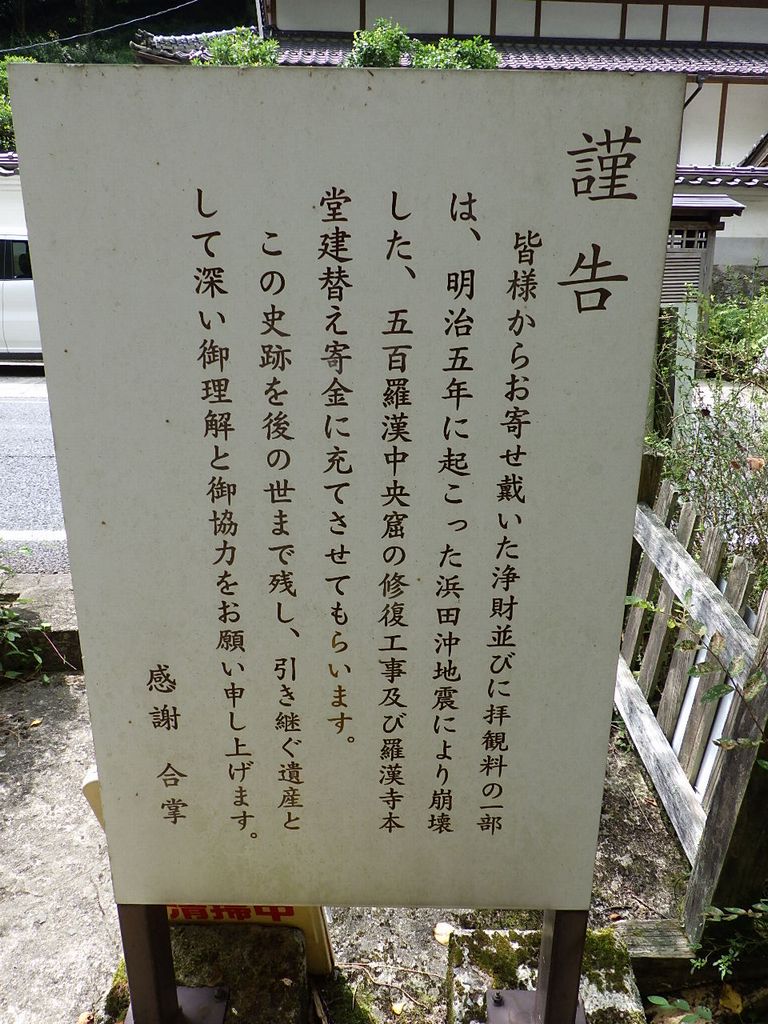 謹告
皆様からお寄せ戴いた浄財並びに拝観料の一部
は、明治五年に起こった浜田沖地震により崩壊
した、五百羅漢中央窟の修復工事及び羅漢寺本
堂建替え寄金に充てさせてもらいます。
この史跡を後の世まで残し、引き継ぐ遺産と
して深い御理解と御協力をお願い申し上げます。
感謝 合掌
清掃中